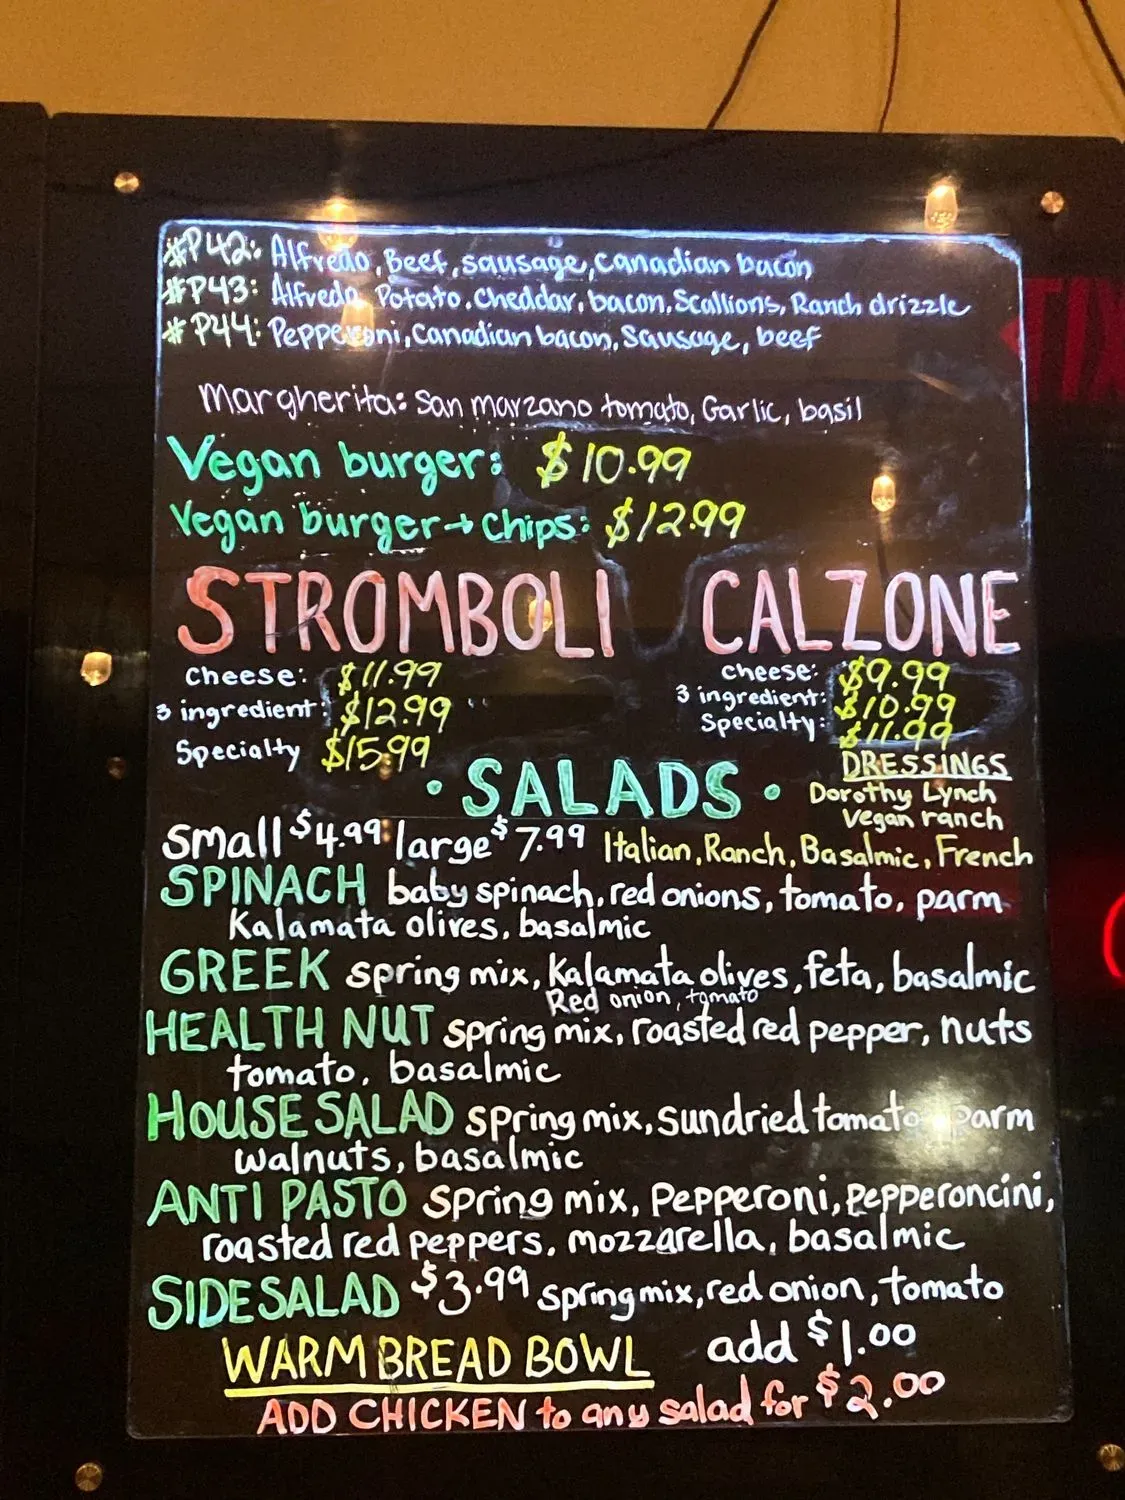 #P42: Alfredo, Beef, sausage, Canadian bacon
#P43: Alfredo, Potato, Cheddar, bacon, Scallions, Ranch drizzle
#P44: Pepperoni, Canadian bacon, Sausage, beef
Margherita: San marzano tomato, Garlic, basil
Vegan burger: $10.99
Vegan burger → Chips: $12.99
STROMBOLI CALZONE
Cheese: $11.99 cheese: $9.99
3 ingredient: $12.99 3 ingredient: $10.99
Specialty $15.99 Specialty: $11.99
DRESSINGS
• SALADS • Dorothy Lynch
Vegan ranch
Small $4.99 large $7.99 Italian, Ranch, Basalmic, French
SPINACH baby spinach, red onions, tomato, parm
Kalamata olives, basalmic
GREEK spring mix, Kalamata olives, feta, basalmic
Red onion, tomato
HEALTH NUT spring mix, roasted red pepper, nuts
tomato, basalmic
HOUSE SALAD spring mix, sundried tomato parm
walnuts, basalmic
ANTI PASTO spring mix, pepperoni, pepperoncini,
roasted red peppers, mozzarella, basalmic
SIDE SALAD $3.99 spring mix, red onion, tomato
WARM BREAD BOWL add $1.00
ADD CHICKEN to any salad for $2.00